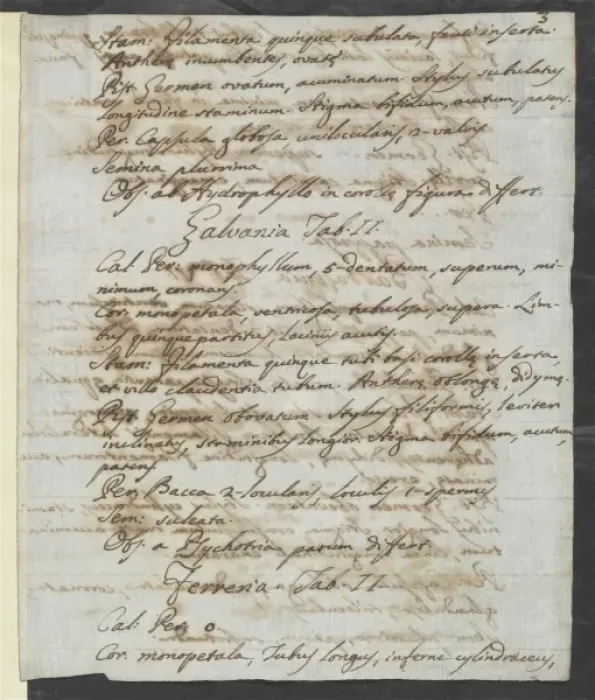 3
Stam: Filamenta quinque subulata, fauci inserta.
Antherę incumbentes, ovatę
Pist: Germen ovatum, acuminatum. Stylus subulatus
Longitudine staminum. Stigma bifidum, acutum, patens.
Per: Capsula globosa, unilocularis, 2-valvis
Semina plurima
Obs: ab Hydrophyllo in corollę figura differt.
Galvania Tab. II.
Cal: Per: monophyllum, 5-dentatum, superum, mi-
nimum, coronans.
Cor: monopetala, ventricosa, tubulosa, supera. Lim-
bus quinquepartitus, laciniis acutis.
Stam: Filamenta quinque tubi basi corollę inserta,
et villo claudentia tubum. Antherę oblongę, didymę.
Pist: Germen obovatum. Stylus filiformis, leviter
inclinatus, staminibus longior. Stigma bifidum, acutum,
patens.
Per: Bacca 2-locularis, loculis 1-spermis
Sem: sulcata.
Obs: a Psychotria parum differt.
Ferreria Tab. II
Cal: Per: 0.
Cor: monopetala, Tubus longus, inferne cylindraceus,